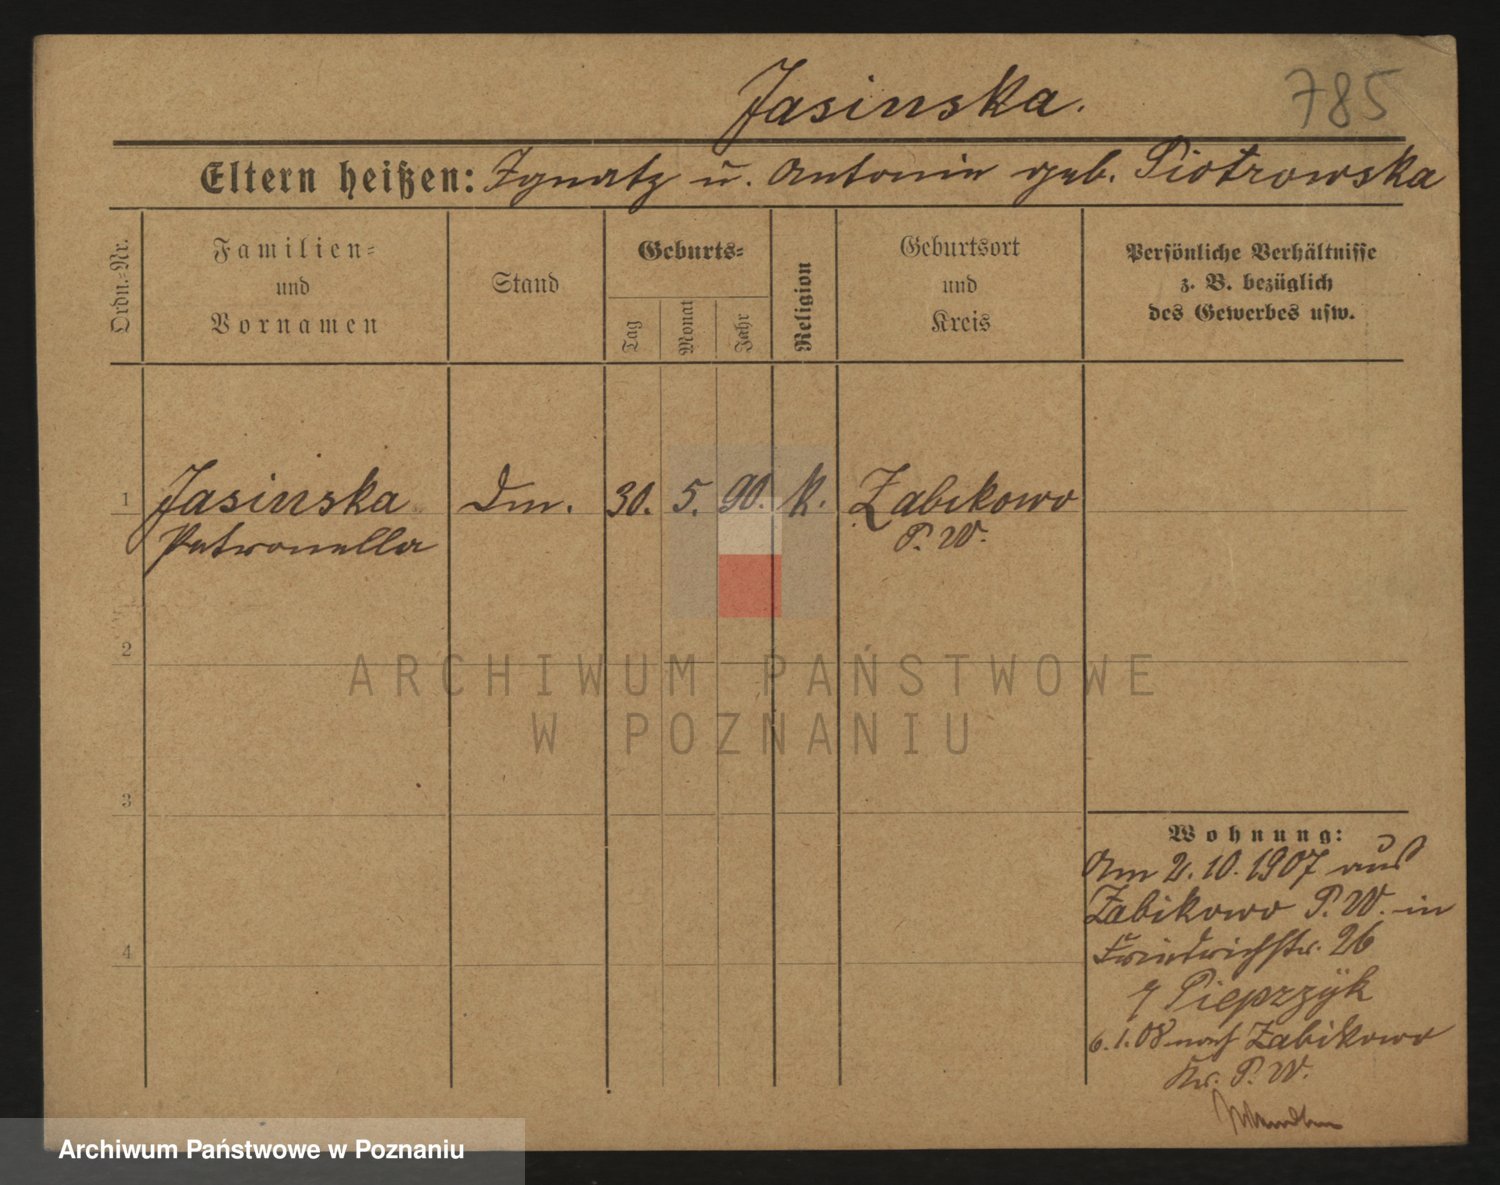 Jasinska.
785
Eltern heißen: Ignatz u. Antonie geb. Piotrowska
Ordn.-Nr.
Familien-
und
Vornamen
Stand
Geburts-
Tag
Monat
Jahr
Religion
Geburtsort
und
Kreis
Persönliche Verhältnisse
z. B. bezüglich
des Gewerbes usw.
1 Jasinska Dm. 30. 5. 90. k. Zabikowo
Petronella P. W.
2
ARCHIWUM PAŃSTWOWE
W POZNANIU
3
Wohnung:
Am 2.10.1907 aus
Zabikowo P. W. in
4
Friedrichstr. 26
Pieprzÿk
6.1.08 nach Zabikowo
Kr. P. W.
Archiwum Państwowe w Poznaniu